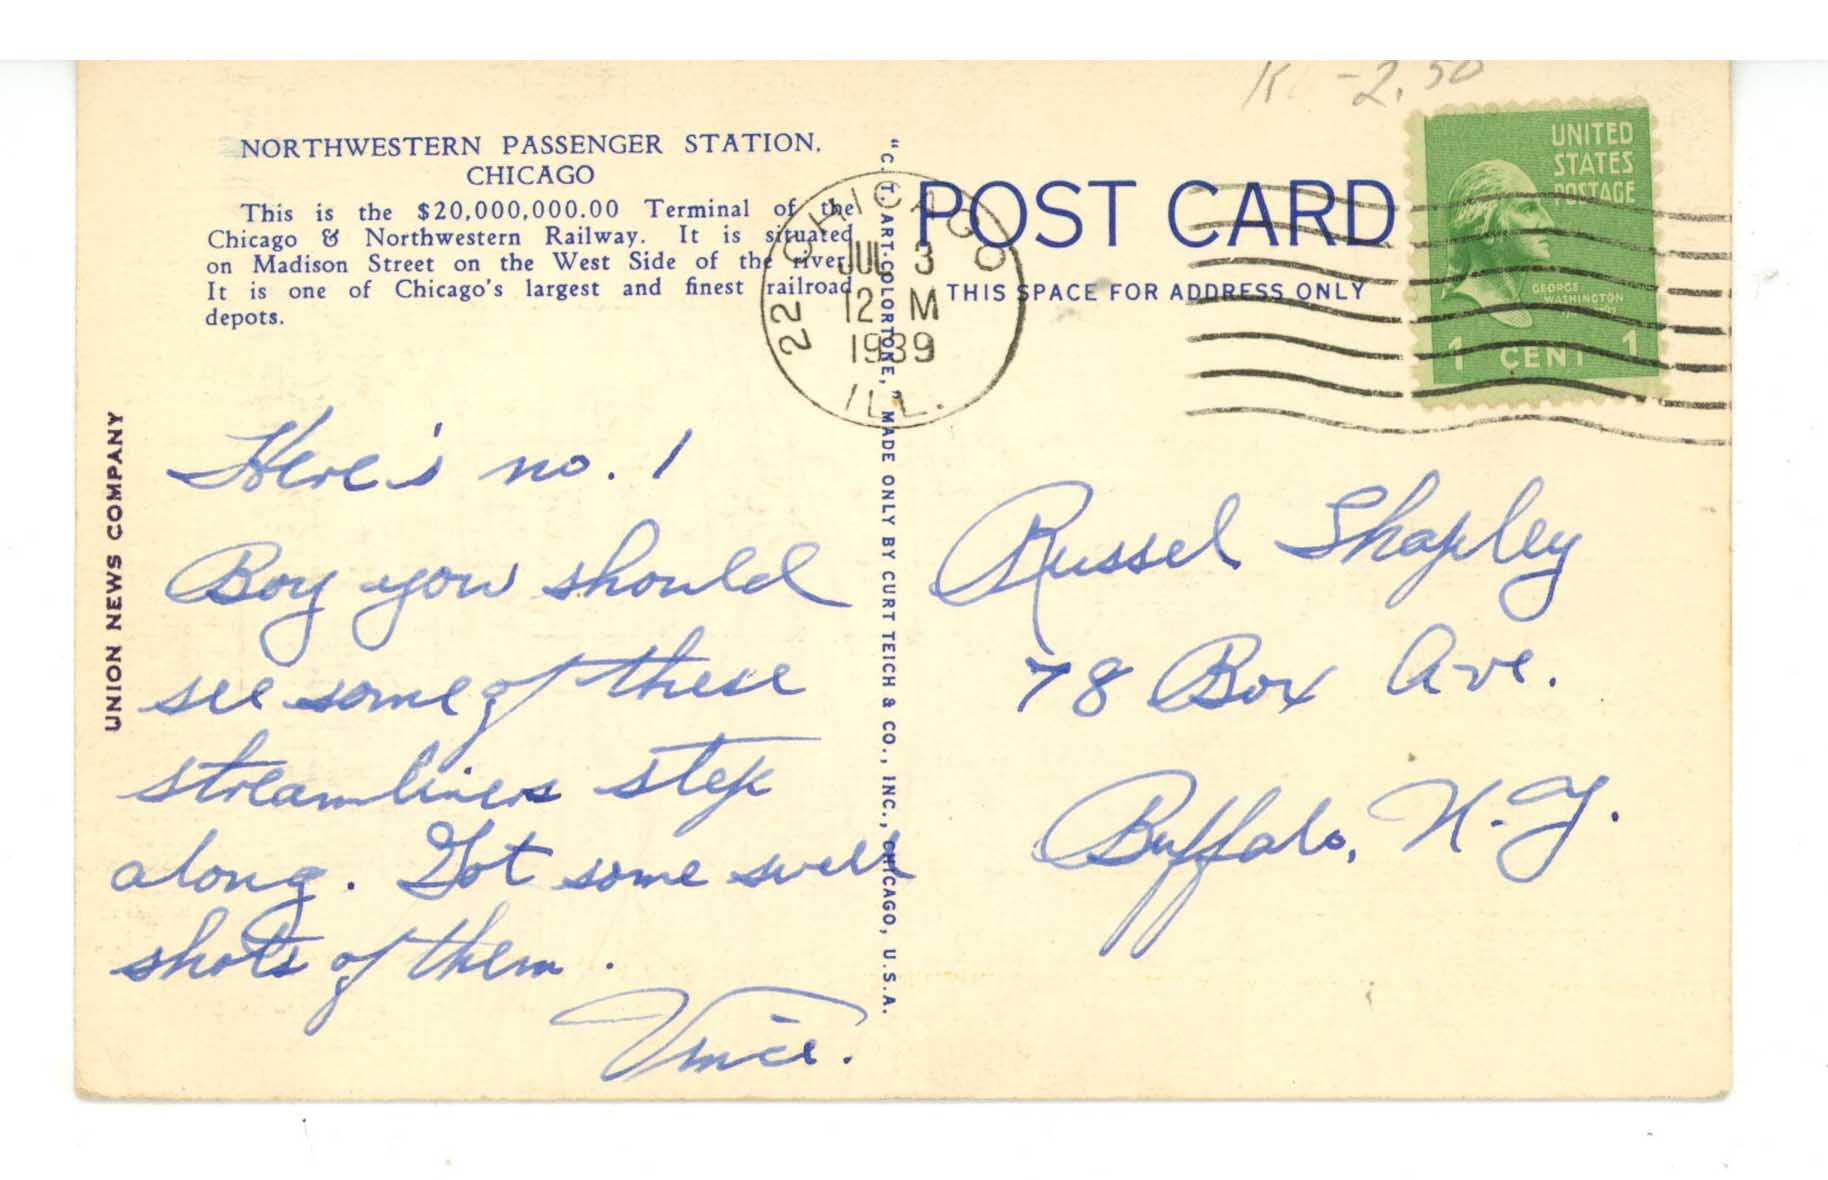 K -2.50
NORTHWESTERN PASSENGER STATION,
CHICAGO
This is the $20,000,000.00 Terminal of the
Chicago & Northwestern Railway. It is situated
on Madison Street on the West Side of the river.
It is one of Chicago's largest and finest railroad
depots.
UNION NEWS COMPANY
"C. T. ART-COLORTONE," MADE ONLY BY CURT TEICH & CO., INC., CHICAGO, U.S.A.
22 CHICAGO
JUL 3
12 M
1939
ILL.
POST CARD
THIS SPACE FOR ADDRESS ONLY
UNITED
STATES
POSTAGE
GEORGE
WASHINGTON
1 CENT 1
Here's no. 1
Boy you should
see some of these
streamliners step
along. Got some swell
shots of them.
Vince.
Russel Shapley
78 Box Ave.
Buffalo, N.Y.